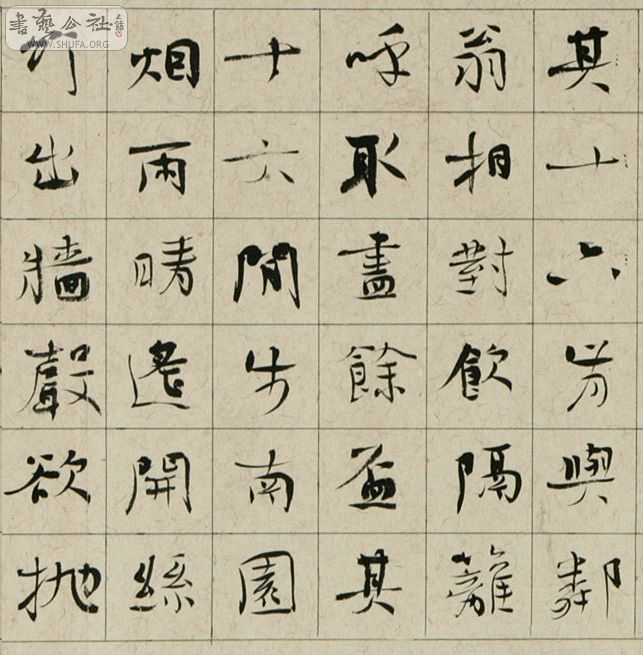 書藝公社
WWW.SHUFA.ORG
其十六肯與鄰
翁相對飲隔籬
呼取盡餘盃其
十六閒步南園
烟雨晴遙聞絲
竹出牆聲欲拋